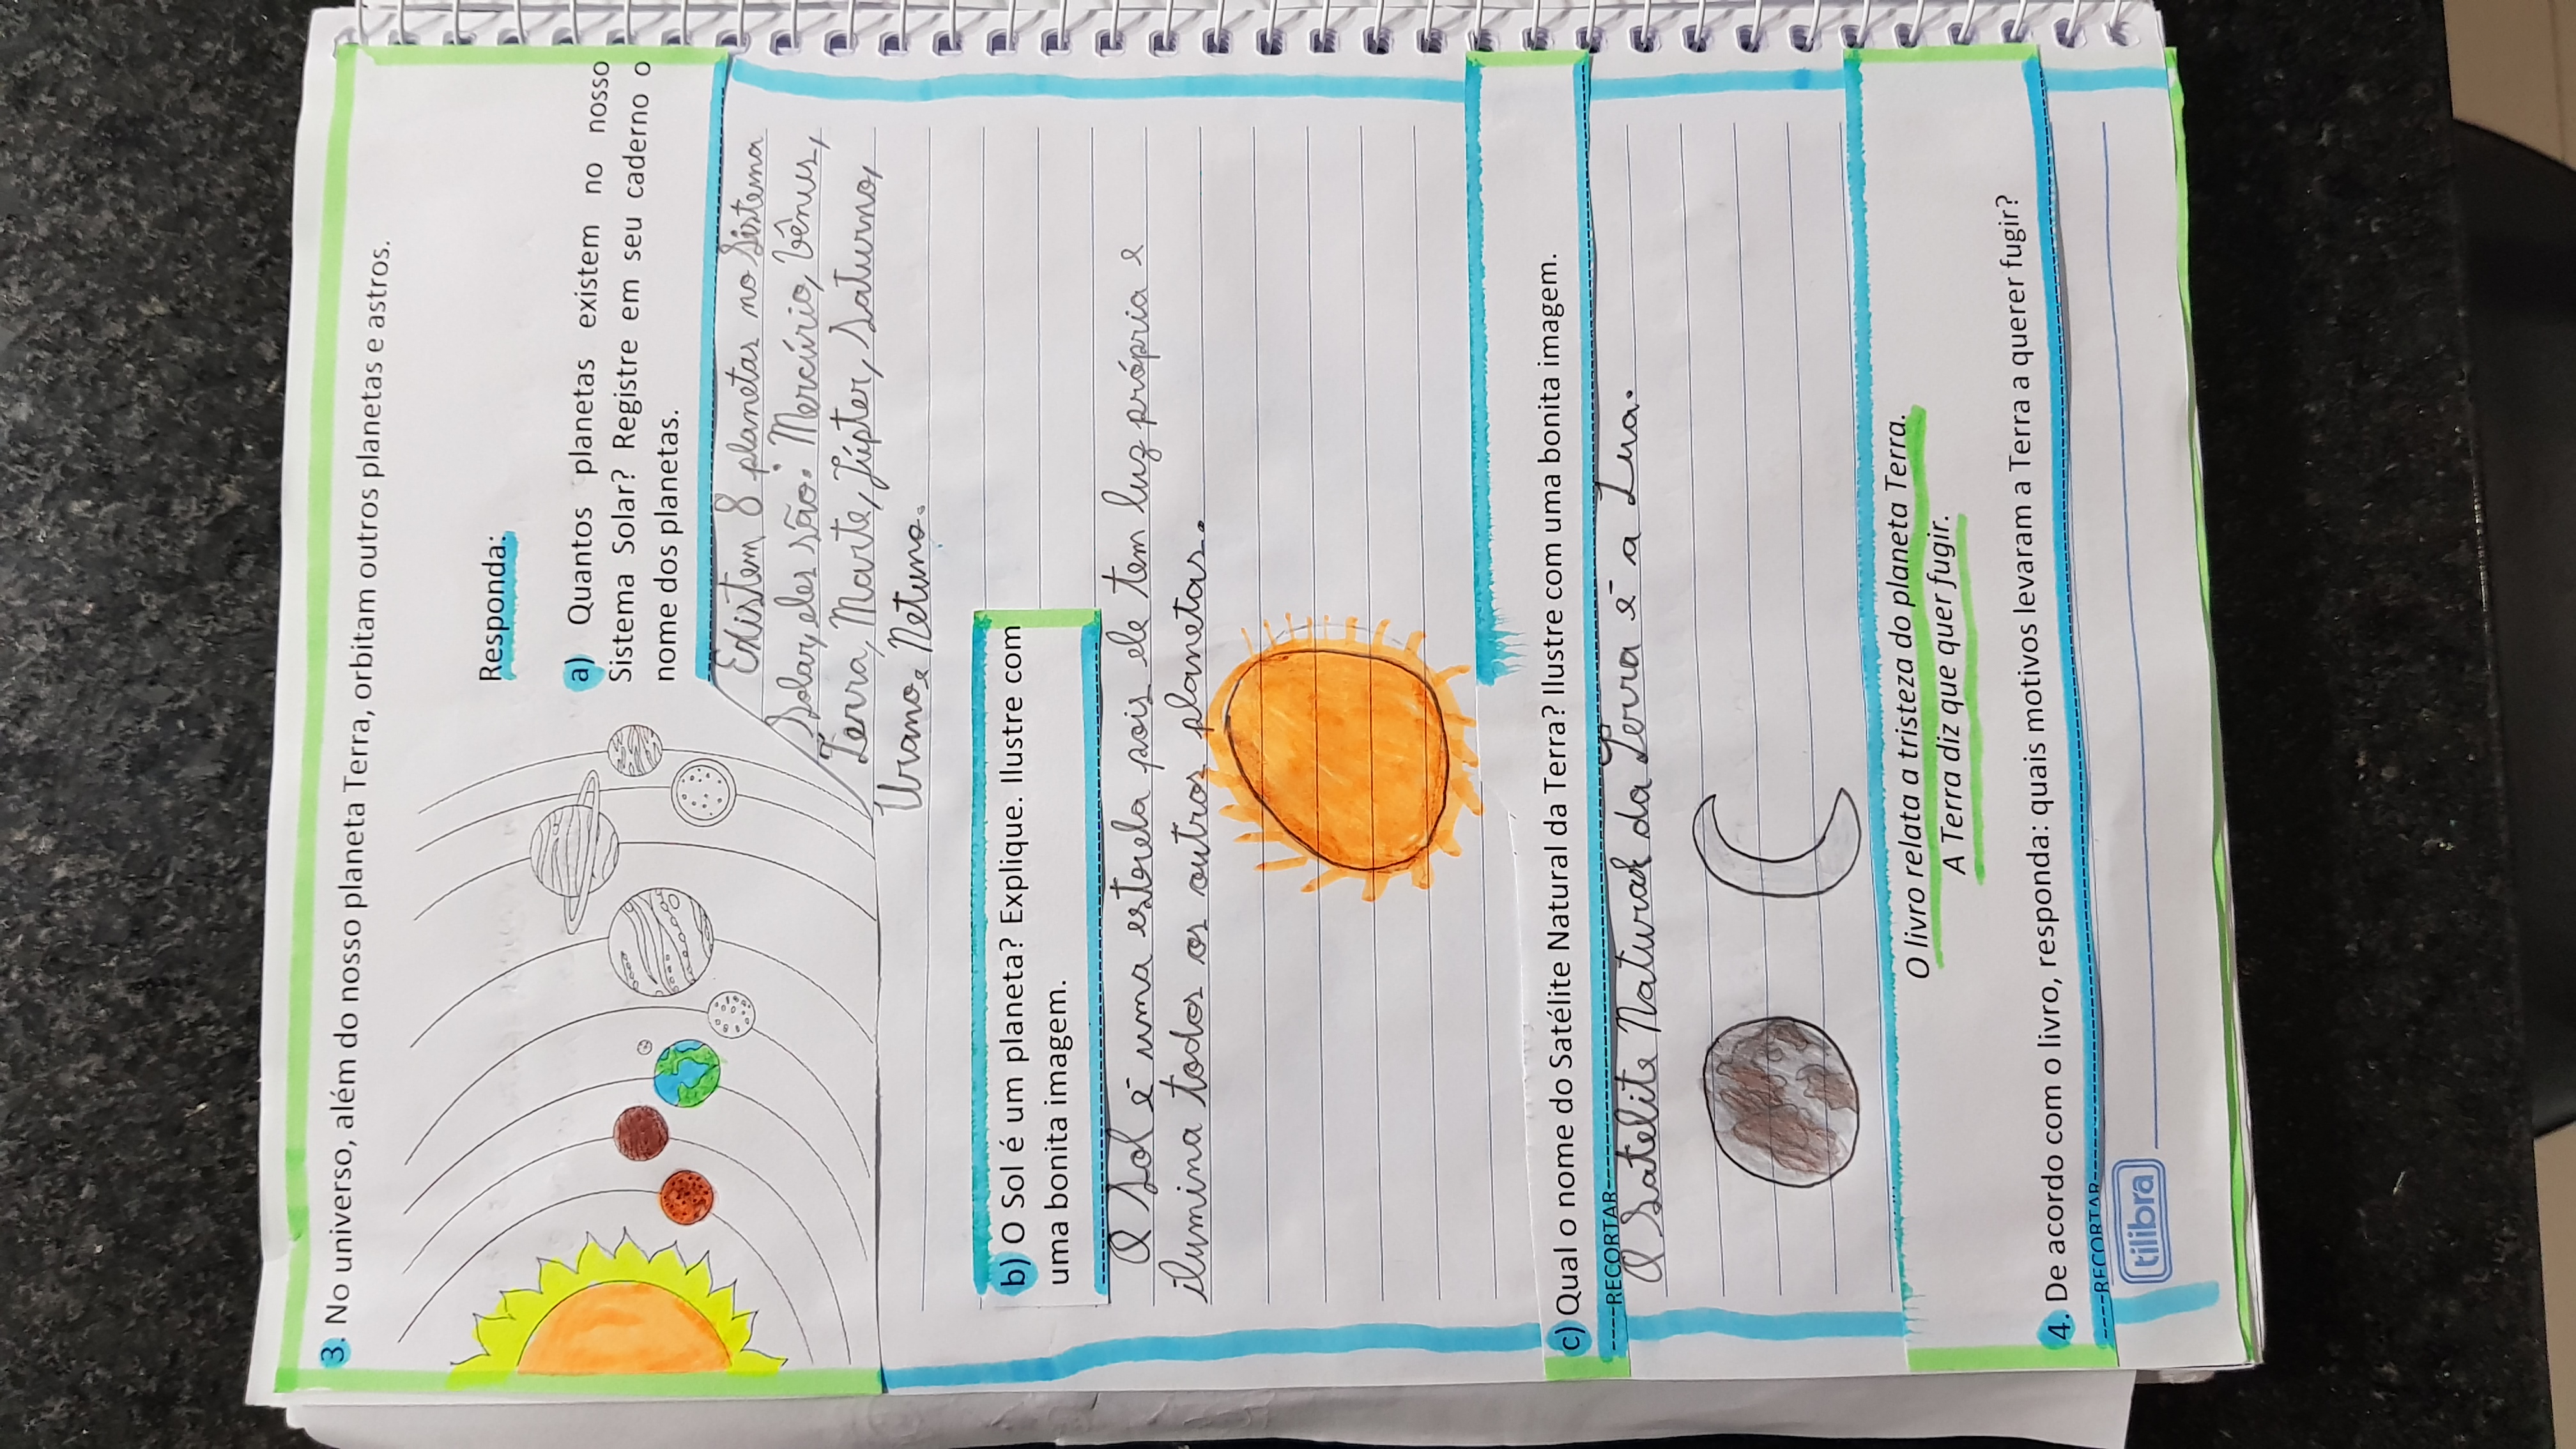 3. No universo, além do nosso planeta Terra, orbitam outros planetas e astros.
Responda:
a) Quantos planetas existem no nosso
Sistema Solar? Registre em seu caderno o
nome dos planetas.
Existem 8 planetas no Sistema
Solar, eles são: Mercúrio, Vênus,
Terra, Marte, Júpter, Saturno,
Urano e Netuno.
b) O Sol é um planeta? Explique. Ilustre com
uma bonita imagem.
O Sol é uma estrela pois ele tem luz própria e
ilumina todos os outros planetas.
c) Qual o nome do Satélite Natural da Terra? Ilustre com uma bonita imagem.
----RECORTAR----
O Satelite Natural da Terra é a Lua.
O livro relata a tristeza do planeta Terra.
A Terra diz que quer fugir.
4. De acordo com o livro, responda: quais motivos levaram a Terra a querer fugir?
----RECORTAR----
tilibra